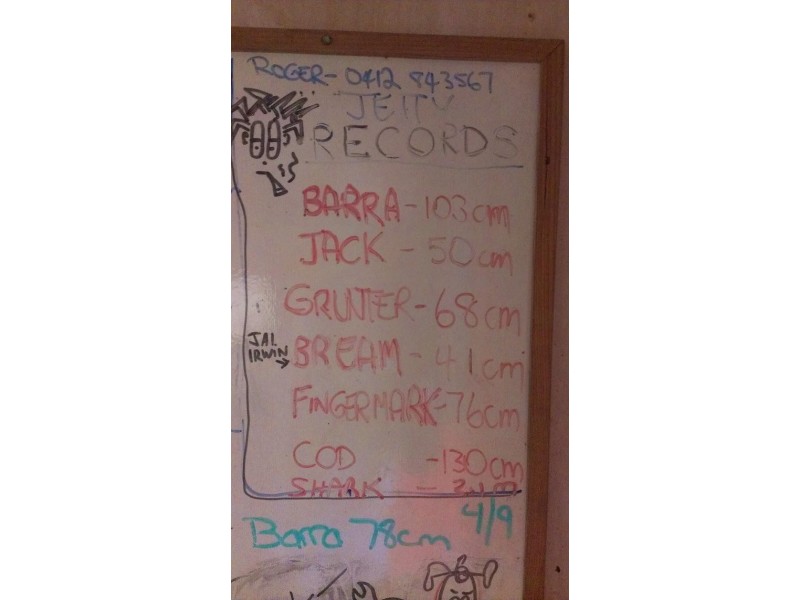 ROGER- 0412 843567
RECORDS
BARRA - 103cm
JACK - 50cm
GRUNTER - 68cm
JAL
IRWIN
BREAM - 41cm
FINGERMARK-76cm
COD -130cm
SHARK -
4/9
Barra 78cm